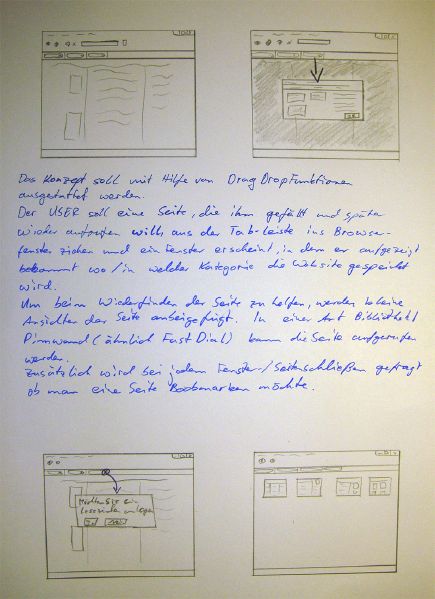 Das Konzept soll mit Hilfe von Drag Drop Funktionen
ausgestattet werden.
Der USER soll eine Seite, die ihm gefällt und später
wieder aufrufen will, aus der Tab-leiste ins Browser-
fenster ziehen und ein Fenster erscheint, in dem er aufgezeigt
bekommt wo/in welcher Kategorie die Website gespeichert
wird.
Um beim Wiederfinden der Seite zu helfen, werden kleine
Ansichten der Seite angefügt. In einer Art Bibliothek/
Pinnwand (ähnlich Fast Dial) kann die Seite aufgerufen
werden.
Zusätzlich wird bei jedem Fenster-/Seitenschließen gefragt
ob man eine Seite Bookmarken möchte.
Möchten Sie ein
Lesezeichen anlegen